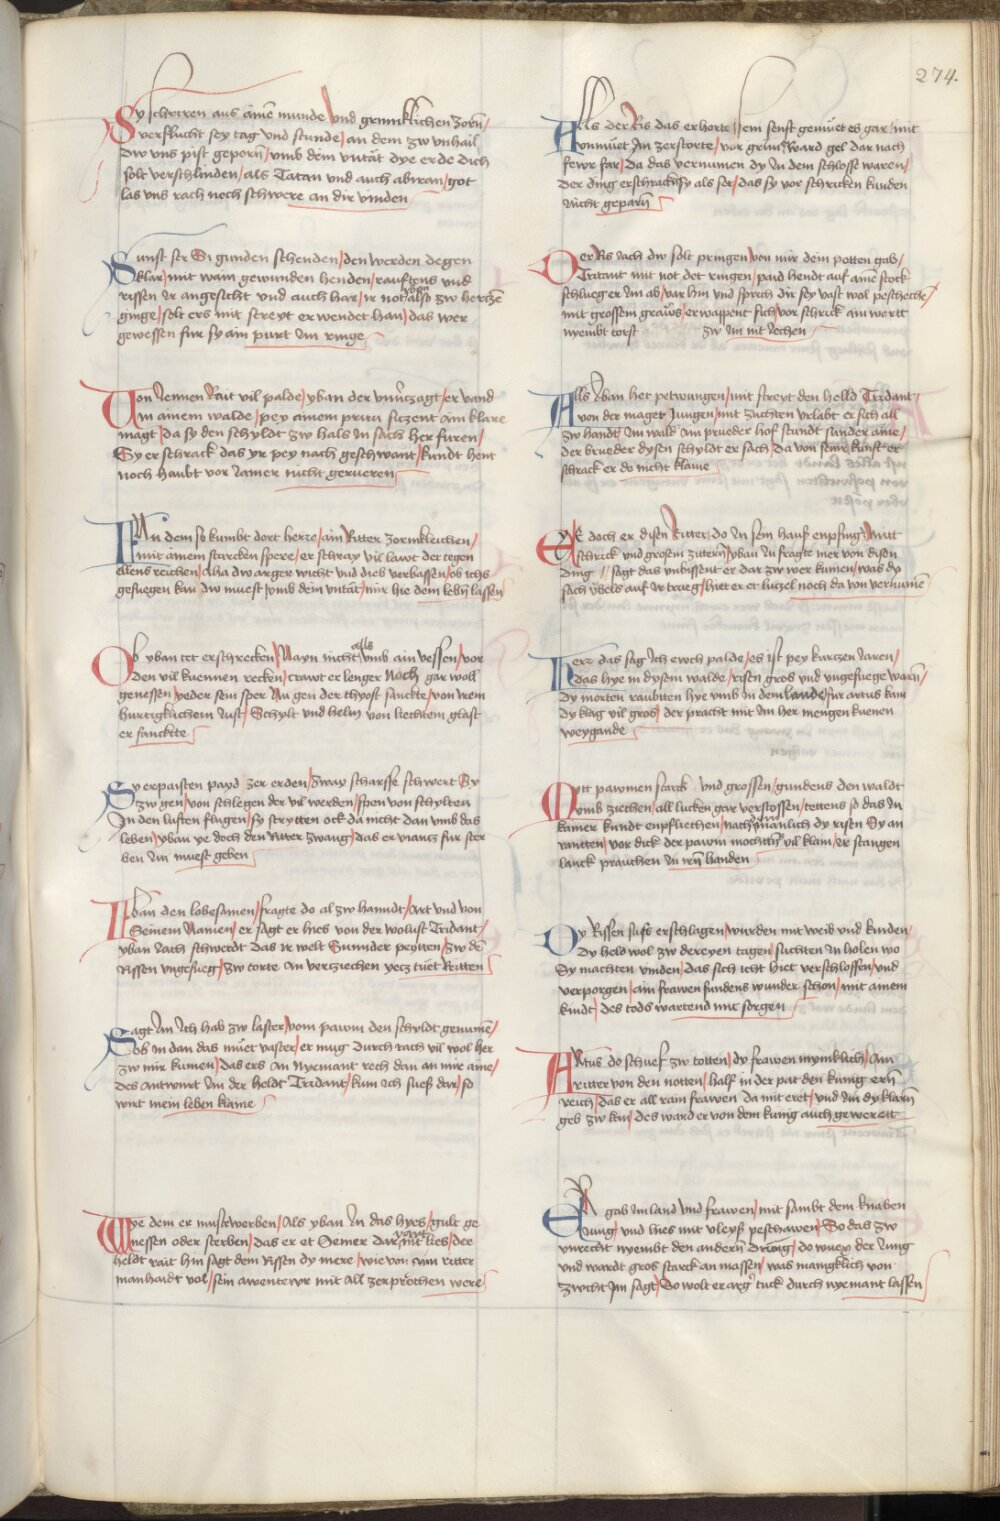 274.
Sy schrirren aus aine͂ munde / vnd grymklichen zorn͂ /
verflucht sey tag vnd stunde / an dem zw vnhail
dw vns pist geporn͂ / vmb dein vntät dye erde dich
solt verschlinden / als Tatan vnd auch abiran / got
las vns rach noch schwere an dir vinden
Sunst ser Si gunden schenden / den werden degen
klar / mit wain gewunden henden / rauftens vnd
rissen ir angesicht vnd auch har / ir not also zw hertze͂
ginge / solt ers mit streyt erwendet han / das wer
gewessen fur sy ain purt im ringe
Von dennen Rait vil palde / yban der vnu͂tzagt / er vand
In ainem walde / pey ainem prun sitzent ain klare
magt / da sy den schyldt zw hals in sach her furen /
Sy erschrack das yr pey nach geschwant / kundt hent
noch haubt vor Jamer nicht gerueren
In dem so kumbt dort herze / ain Ritter zornikleichen /
mit ainem starcken spere / er schray vil lawt der tegen
ellens reichen / Aha dw arger wicht vnd dieb verbassen / ob ichs
gefuegen kan dw muest vmb dein vntät / mir hie dem leben͂ lassen
Ob yban tet erschrecken / Nayn nicht alls vmb ain vessen / vor
den vil kuennen recken / trawt er lenger noch gar woll
genessen / yeder sein sper in gen der thyost sanckte / von irem
hurtigklichem Just / Schylt vnd helm von liechtem glast
er sanckte
Sy erpaisten payd zer erden / zway scharffe schwert Sy
zwgen / von schlegen der vil werden / spen von schylten
In den lufften flugen / sy strytten ock da nicht dan vmb das
leben / yban ye doch den Ritter zwang / das er vianntz fur ster
ben im muest geben
Iban den lobesamen / fragte do al zw hanndt / Art vnd von
Seinem Namen / er sagt er hies von der wolust Tridant /
yban nach schwerdt das ir welt Summder peytten / zw de͂
Rissen vngefueg / zw torte an vertziechen yecz tuet Ritten
Sagt im ich hab zw laster / vom pawm den schyldt genume͂ /
Ob in dan das müet vaster / er mug durch rach vil wol her
zw mir kumen / das ers an nyemant rech dan an mir aine /
des antwurt im der heldt Tridant / kum och sues dar / so
wirt mein leben klaine
Wye dem er must werben / Als yban in das hyes / gult ge
nessen oder sterben / das er et Seiner dar vart nit lies / der
heldt rait hin sagt dem Rissen dy mere / wie von aim ritter
manhaidt vol / sein awentewr mit all zerprochen were
Alls der Ris das erhorte / sein senft gemüet es gar / mit
vnmüet im zerstorte / vor grim ward gel dar nach
fewr far / Da das vernumen dy in dem schlosse waren /
Der ding erschracken͂ sy als ser / das sy vor schricken kunden
nicht geparn͂
Der Ris iach dw solt pringen / von mir dein potten gab /
Tritant mit not det ringen / paid hendt auf aine͂ stock
schlueg er im ab / var hin vnd sprich dir sey vast wol peschechen /
mit grossem graws / er wappent sich / vor schrick ain wertt
nyembt torst zw im nit iechen
Alls yban het petwungen / mit streyt den helld Tridant /
von der maget Jungen / mit zuchten vrlabt er sich all
zw handt / im wald ain prueder hof stundt sunder aine /
der brueder dysen schyldt er sach / Da von seiner kunst er
schrack er do nicht klaine
Ye doch er disen Ritter / do in sein haus enpfing / Mitt
schrick vnd grosem zittern͂ / yban in fragte mer von disen
ding / sagt das vnbissent er dar zw wer kumen / was dy
sach ybels auf ir trueg / hiet er et luzel noch da von vernume͂
Herr das sag ich ewch palde / es ist pey kurtzen iaren /
das hye in dysem walde / risen gros vnd vngefuege warn͂ /
dy morten raubtten hye vmb in dem lande / fur artus kam
dy klag vil gros / der pracht mit im her mengen kuenen
weygande
Mitt pawmen starck vnd grossen / gundens den waldt
vmb ziechen / all lucken gar verstossen / tettens so das in
kainer kundt enpfliechen / nach manlich dy risen Sy an
ranten / vor dick der pawm mochtn͂ vil klain / ir stangen
lanck prauchen in irn͂ handen
Dy Rissen suss erschlagen / wurden mit weib vnd kinden /
Dy held wol zw dreyen tagen / suchten in holen wo
Sy machten vinden / das sich icht hiet verschlossen / vnd
verporgen / ain frawen fundens wunder schon / mit ainem
kindt / des tods wartend mit sorgen
Artus do schuef zw totten / dy frawen mynniklich / Ain
ritter von den notten / half in der pat den kunig ern͂
reich / das er all rain frawen da mit eret / vnd im dy klarn͂
geb zw kan / des ward er von dem kunig auch gewerett
Er gab im land vnd frawen / mit sambt dem knaben
iung / vnd hies mit vleys peschawen / So das zw
vnrecht nyembt den andern͂ drung / do wuex der Jung
vnd wardt gros starck an massen / was manigklich von
zwcht im sagt / So wolt er arg͂ tuck durch nyemant lassen